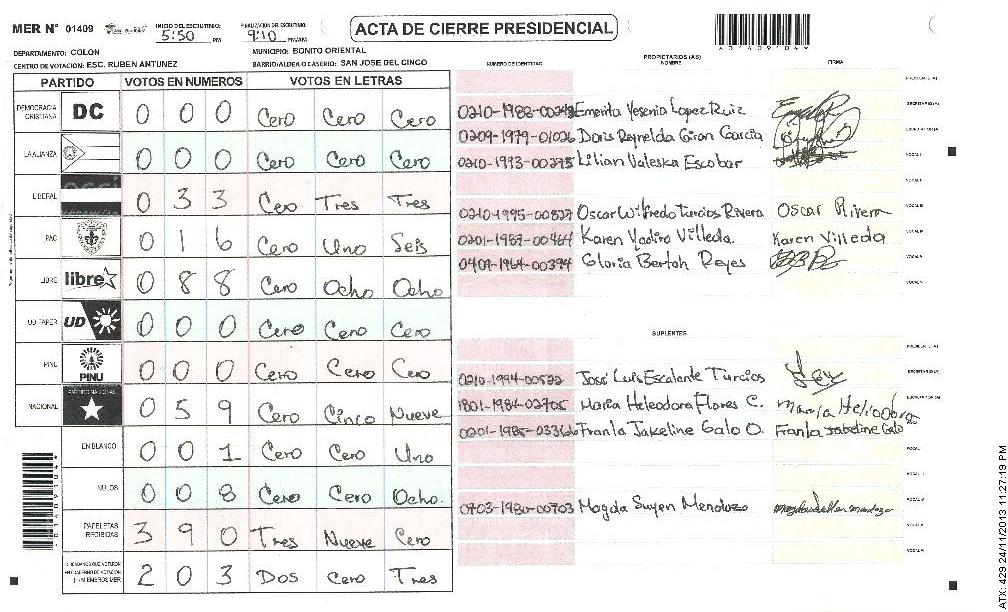 MER Nº 01409
INICIO DEL ESCRUTINIO: 5:50 PM
FINALIZACION DEL ESCRUTINIO: 9:10 PM/AM
ACTA DE CIERRE PRESIDENCIAL
DEPARTAMENTO: COLON
MUNICIPIO: BONITO ORIENTAL
CENTRO DE VOTACION: ESC. RUBEN ANTUNEZ
BARRIO/ALDEA O CASERIO: SAN JOSE DEL CINCO
PARTIDO VOTOS EN NUMEROS VOTOS EN LETRAS
DEMOCRACIA CRISTIANA DC 0 0 0 Cero Cero Cero
LA ALIANZA 0 0 0 Cero Cero Cero
LIBERAL 0 3 3 Cero Tres Tres
PAC 0 1 6 Cero Uno Seis
LIBRE libre 0 8 8 Cero Ocho Ocho
UD-FAPER UD 0 0 0 Cero Cero Cero
PINU PINU 0 0 0 Cero Cero Cero
NACIONAL 0 5 9 Cero Cinco Nueve
EN BLANCO 0 0 1 Cero Cero Uno
NULOS 0 0 8 Cero Cero Ocho.
PAPELETAS RECIBIDAS 3 9 0 Tres Nueve Cero
CIUDADANOS QUE VOTARON EN CUADERNO DE VOTACION (+) MIEMBROS MER 2 0 3 Dos Cero Tres
NUMERO DE IDENTIDAD PROPIETARIOS (AS) NOMBRE FIRMA
PRESIDENTE (A)
0210-1988-00248 Emerita Yesenia Lopez Ruiz SECRETARIO (A)
0209-1979-01026 Doris Reynelda Giron Garcia ESCRUTADOR (A)
0210-1993-00275 Lilian Valeska Escobar VOCAL I
VOCAL II
0210-1995-00827 Oscar Wilfredo Turcios Rivera Oscar Rivera VOCAL III
0201-1989-00464 Karen Yadira Villeda. Karen Villeda VOCAL IV
0409-1964-00394 Gloria Bertah Reyes VOCAL V
VOCAL VI
SUPLENTES
PRESIDENTE (A)
0210-1994-00522 José Luis Escalante Turcios SECRETARIO (A)
1801-1984-02705 Maria Heleodora Flores C. ESCRUTADOR (A)
0201-1985-03366 Franla Jakeline Galo O. Franla Jakeline Galo VOCAL I
VOCAL II
0703-1986-00703 Magda Suyen Mendoza
VOCAL V
VOCAL VI
ATX: 429 24/11/2013 11:27:19 PM